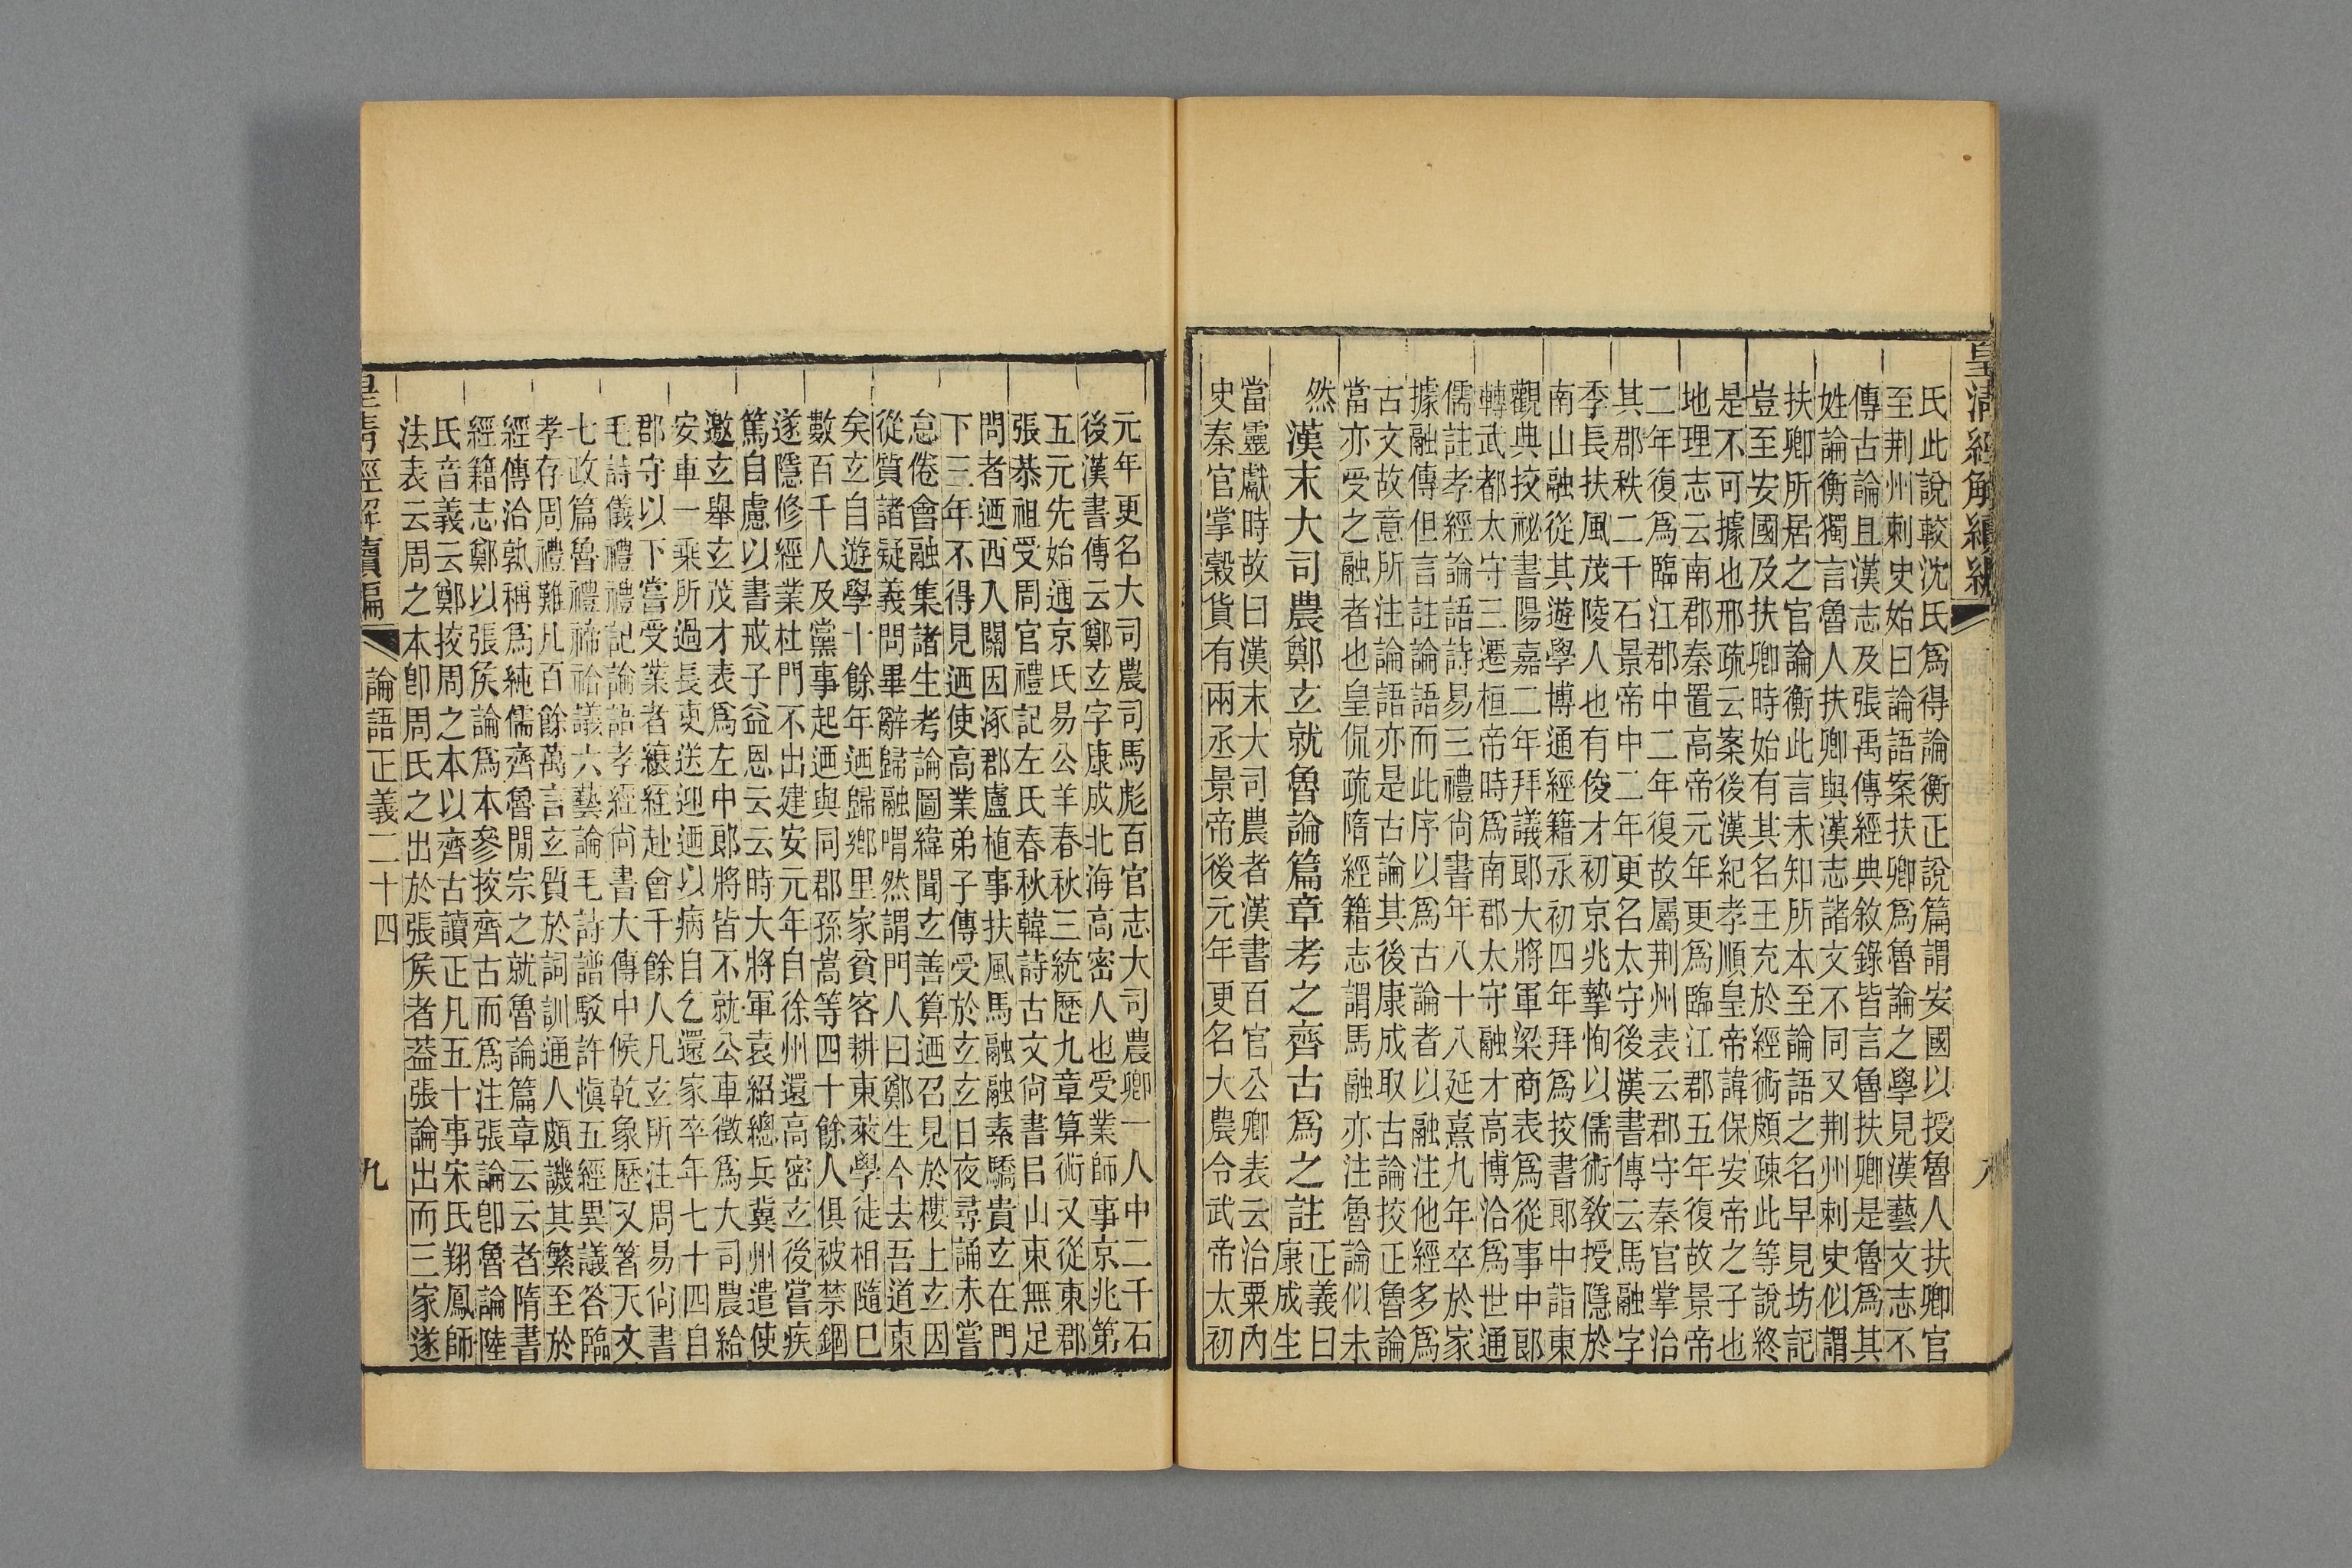 皇清經解續編
氏此說較沈氏爲得論衡正說篇謂安國以授魯人扶卿官
至荆州刺史始曰論語案扶卿爲魯論之學見漢藝文志不
傳古論且漢志及張禹傳經典敘錄皆言魯扶卿是魯爲其
姓論衡獨言魯人扶卿與漢志諸文不同又荆州刺史似謂
扶卿所居之官論衡此言未知所本至論語之名早見坊記
豈至安國及扶卿時始有其名王充於經術頗疎此等說終
是不可據也邢疏云案後漢紀孝順皇帝諱保安帝之子也
地理志云南郡秦置高帝元年更爲臨江郡五年復故景帝
二年復爲臨江郡中二年復故屬荆州表云郡守秦官掌治
其郡秩二千石景帝中二年更名太守後漢書傳云馬融字
季長扶風茂陵人也有俊才初京兆摯恂以儒術敎授隱於
南山融從其遊學博通經籍永初四年拜爲挍書郎中詣東
觀典挍祕書陽嘉二年拜議郎大將軍梁商表爲從事中郎
轉武都太守三遷桓帝時爲南郡太守融才高博洽爲世通
儒註孝經論語詩易三禮尙書年八十八延熹九年卒於家
據融傳但言註論語而此序以爲古論者以融注他經多爲
古文故意所注論語亦是古論其後康成取古論挍正魯論
當亦受之融者也皇侃疏隋經籍志謂馬融亦注魯論似未
然
漢末大司農鄭玄就魯論篇章考之齊古爲之註
正義曰
康成生
當靈獻時故曰漢末大司農者漢書百官公卿表云治粟內
史秦官掌穀貨有兩丞景帝後元年更名大農令武帝太初
元年更名大司農司馬彪百官志大司農卿一人中二千石
後漢書傳云鄭玄字康成北海高密人也受業師事京兆第
五元先始通京氏易公羊春秋三統歷九章算術又從東郡
張恭祖受周官禮記左氏春秋韓詩古文尙書㠯山東無足
問者迺西入關因涿郡盧植事扶風馬融融素驕貴玄在門
下三年不得見迺使高業弟子傳受於玄玄日夜尋誦未嘗
怠倦會融集諸生考論圖緯聞玄善算迺召見於樓上玄因
從質諸疑義問畢辭歸融喟然謂門人曰鄭生今去吾道東
矣玄自遊學十餘年迺歸鄉里家貧客耕東萊學徒相隨已
數百千人及黨事起迺與同郡孫嵩等四十餘人俱被禁錮
遂隱修經業杜門不出建安元年自徐州還高密玄後嘗疾
篤自慮以書戒子益恩云云時大將軍袁紹總兵冀州遣使
邀玄舉玄茂才表爲左中郎將皆不就公車徵爲大司農給
安車一乘所過長吏送迎迺以病自乞還家卒年七十四自
郡守以下嘗受業者縗絰赴會千餘人凡玄所注周易尙書
毛詩儀禮禮記論語孝經尙書大傳中候乾象歷又箸天文
七政篇魯禮禘祫議六藝論毛詩譜駁許愼五經異議答臨
孝存周禮難凡百餘萬言玄質於詞訓通人頗譏其繁至於
經傳洽孰稱爲純儒齊魯閒宗之就魯論篇章云云者隋書
經籍志鄭以張矦論爲本參挍齊古而爲注張論卽魯論陸
氏音義云鄭挍周之本以齊古讀正凡五十事宋氏翔鳳師
法表云周之本卽周氏之出於張矦者葢張論出而三家遂
皇清經解續編
論語正義二十四
九